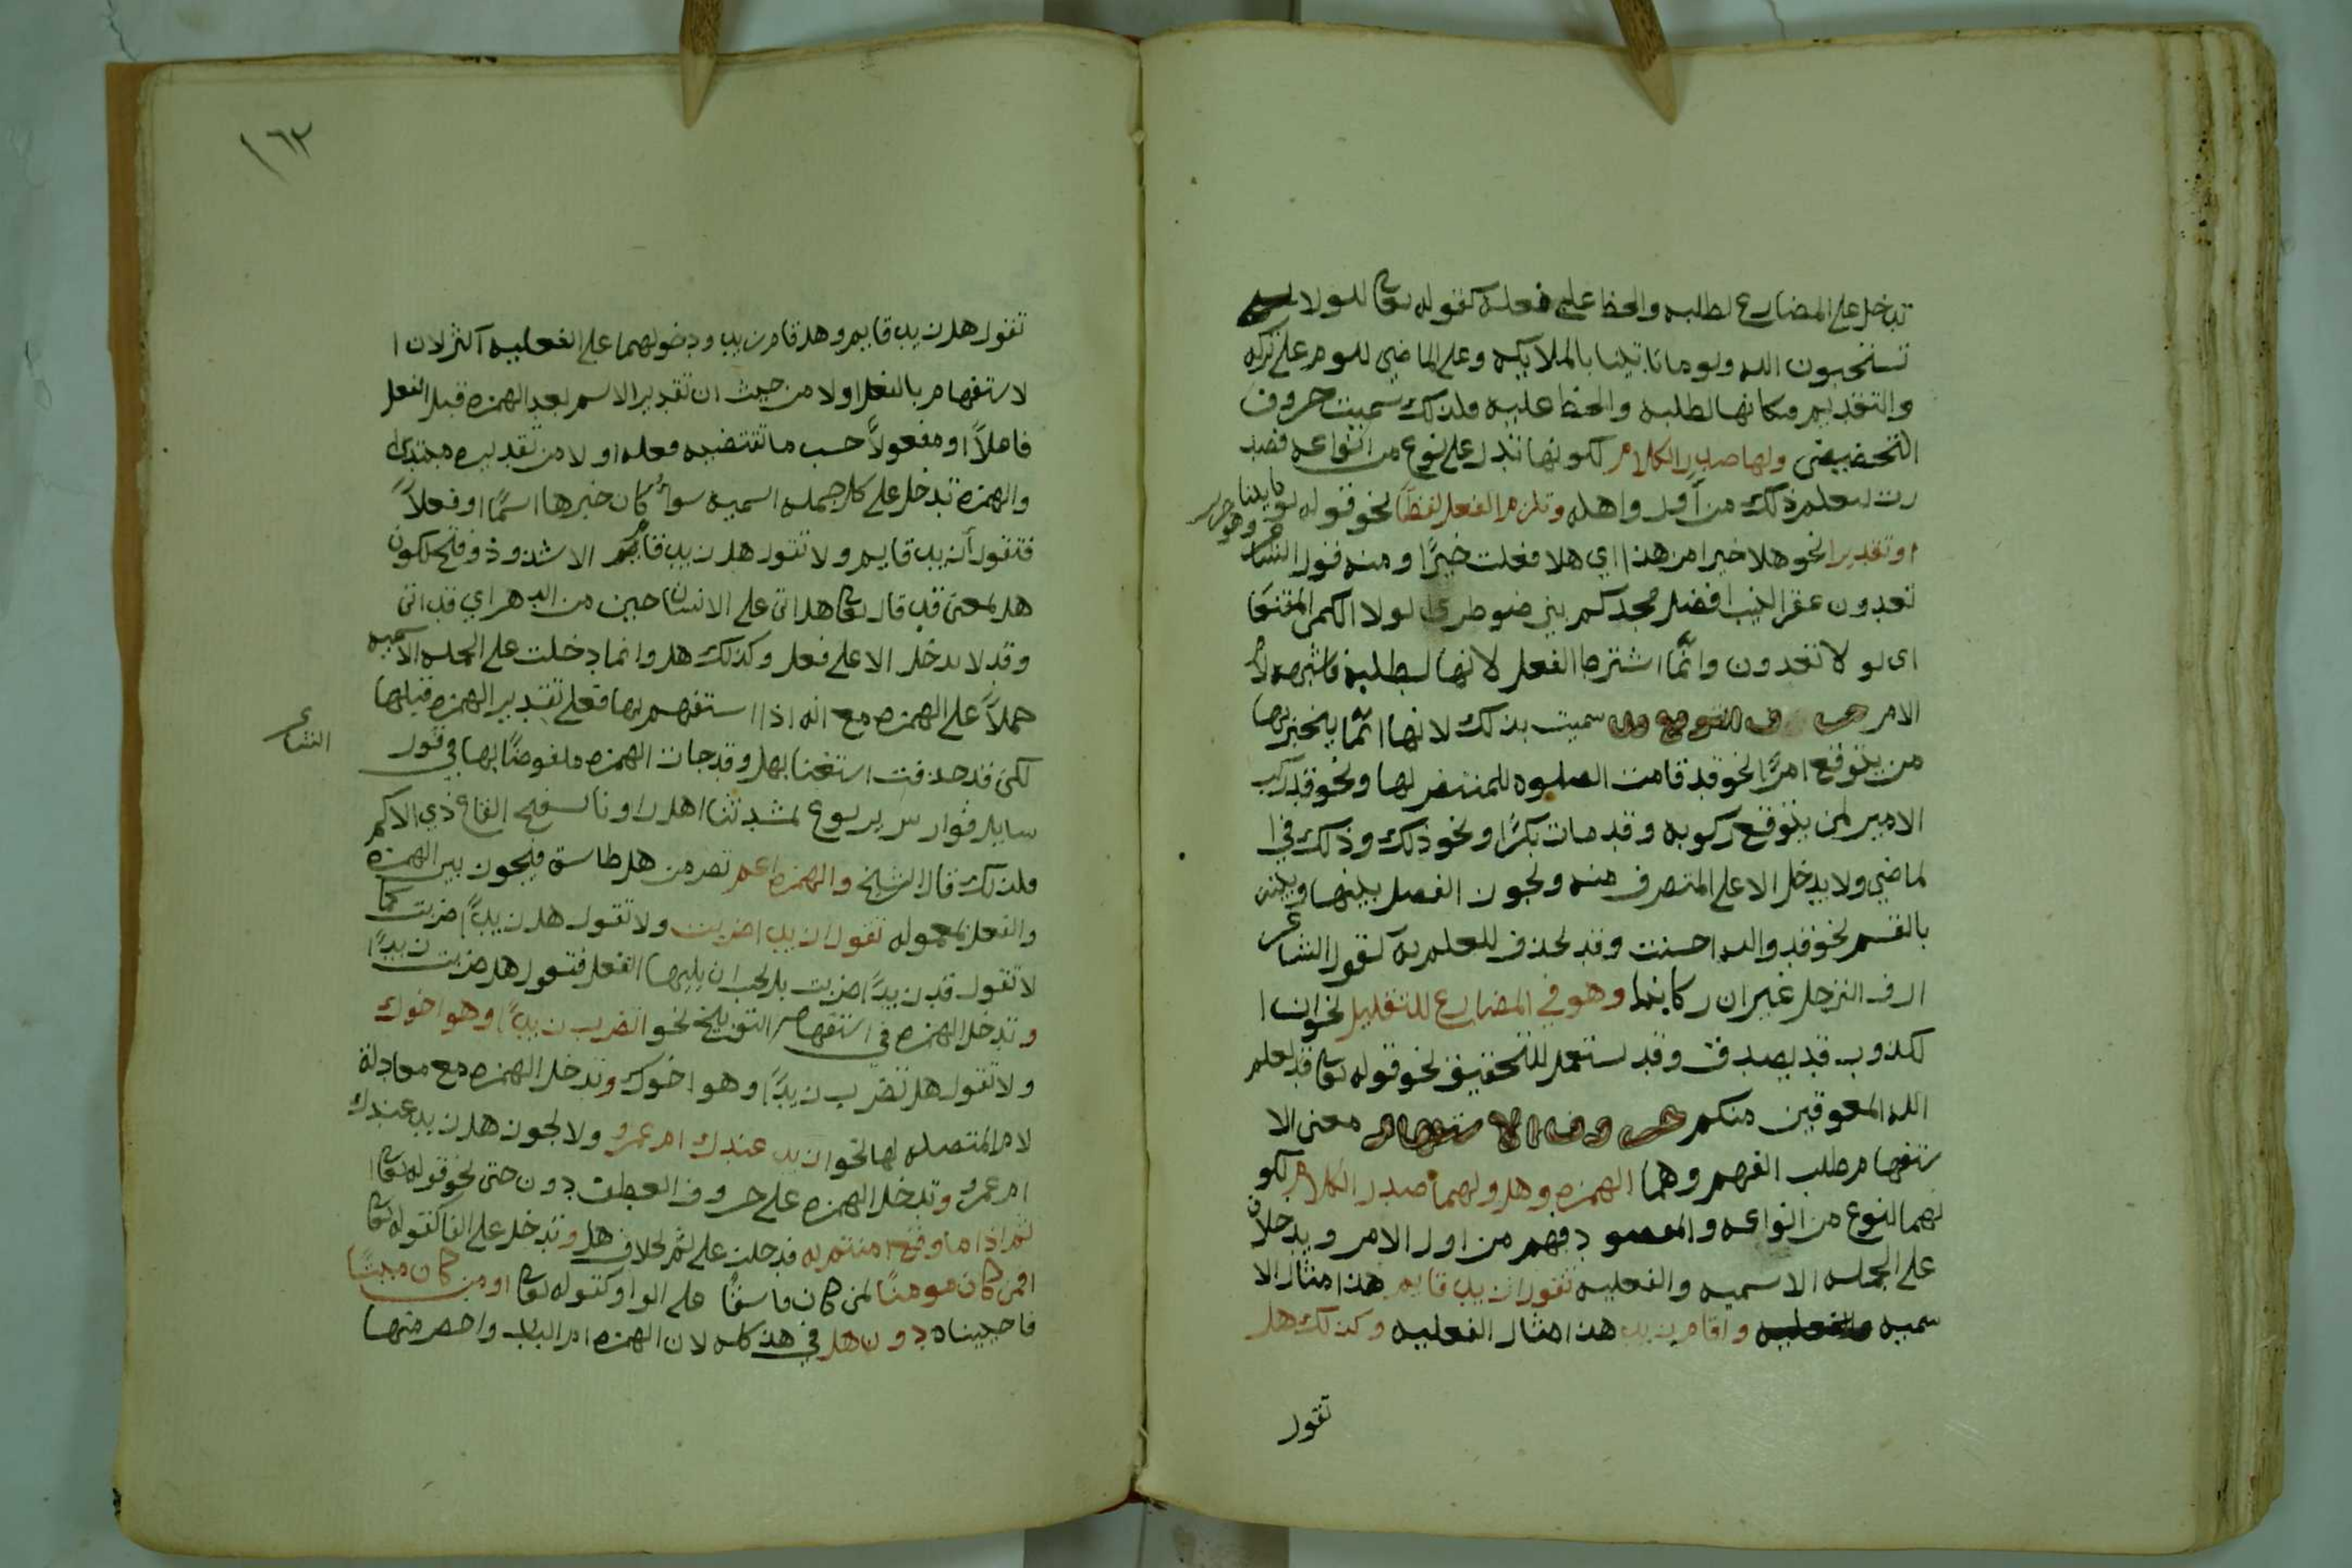 تدخل على المضارع لطلبه والحظ على فعله كقوله تعالى لولا
تستغفرون الله ولو ما تاتينا بالملايكه وعلى الماضي للوم على تركه
والتقديم مكانها لطلبه والحظ عليه فلذلك سميت حروف
التحضيض ولها صدر الكلام لكونها تدل على نوع من انواعه فصد
رت ليعلم ذلك من أول واهله وتلزم الفعل لفظاً نحو قوله لو ما تاتينا
او تقديرا نحو هلا خيرا من هذا اي هلا فعلت خيرًا ومنه قول الشاعر وهو جرير
تعدون عقر النيب افضل مجدكم بني ضوطرى لولا الكمي المقنعا
اى لو لا تعدون وانّما اشترط الفعل لانها لطلبه فاشبهت لام
الامر حروف التوقع قد سميت بذلك لانها انّما يخبر بها
من يتوقع امرًا نحو قد قامت الصلوه للمنتضر لها ونحو قد ركب
الامير لمن يتوقع ركوبه وقد مات بكرًا ونحو ذلك وذلك في ا
لماضي ولا يدخل الا على المتصرف منه ويجوز الفصل بينها وبينه
بالقسم نحو قد والله احسنت وقد تحذف للعلم به كقول الشاعر
ازف الترحل غير ان ركابنا وهو في المضارع للتقليل نحو ان ا
لكذوب قد يصدق وقد تستعمل للتحقيق نحو قوله تعالى قد يعلم
الله المعوقين منكم حروف الاستفهام معنى الا
ستفهام طلب الفهم وهما الهمزه وهل ولهما صدر الكلام لكو
نهما لنوع من انواعه والمقصود فهم من اول الامر ويدخلان
على الجمله الاسميه والفعليه تقول ازيد قايم هذا مثال الا
سميه واقام زيد هذا مثال الفعليه وكذلك هل
تقول
١٦٢
تقول هل زيد قايم وهل قام زيد ودخولهما على الفعليه اكثر لان ا
لاستفهام بالفعل اولا من حيث ان تقدير الاسم بعد الهمزه قبل الفعل
فاعلاً او مفعولاً حسب ما تقتضيه فعله اولا من تقديره مبتدا
والهمزه تدخل على كل جمله اسميه سوآءً كان خبرها اسمًا او فعلاً
فتقول أزيد قايم ولا تقول هل زيد قام الا شذوذ وقبح لكون
هل بمعنى قد قال تعالى هل اتى على الانسان حين من الدهر اي قد اتى
وقد لا يدخل الا على فعل وكذلك هل وانما دخلت على الجمله الاسميه
حملاً على الهمزه مع انه اذا استفهم بها فعلى تقدير الهمزه قبلها
لكن قد حذفت استغنا بهل وقد جات الهمزه ملفوضًا بها في قول الشاعر
سايل فوارس يربوع بشدتنا اهل راونا بسفح القاع ذي الاكم
فلذلك قال الشيخ والهمزه اعم تصرفا من هل فيجوز بين الهمزه
والفعل بمعموله تقول ازيدا ضربت ولا تقول هل زيدًا ضربت كما
لا تقول قد زيدًا ضربت بل يجب ان يليها الفعل فتقول هل ضربت زيدًا
وتدخل الهمزه في استفهام التوبيخ نحو اتضرب زيدًا وهو اخوك
ولا تقول هل تضرب زيدًا وهو اخوك وتدخل الهمزه مع معادلة
لام المتصله لها نحو ازيد عندك ام عمرو ولا يجوز هل زيد عندك
ام عمرو وتدخل الهمزه على حروف العطف دون حتى نحو قوله تعالى ا
ثم اذا ما وقع امنتم به فدخلت على ثم بخلاف هل وتدخل على الفا كقوله تعالى
افمن كان مومنًا كمن كان فاسقًا على الواو كقوله تعالى او من كان ميتًا
فاحييناه دون هل في هذ كله لان الهمزه ام الباب واخصر منها